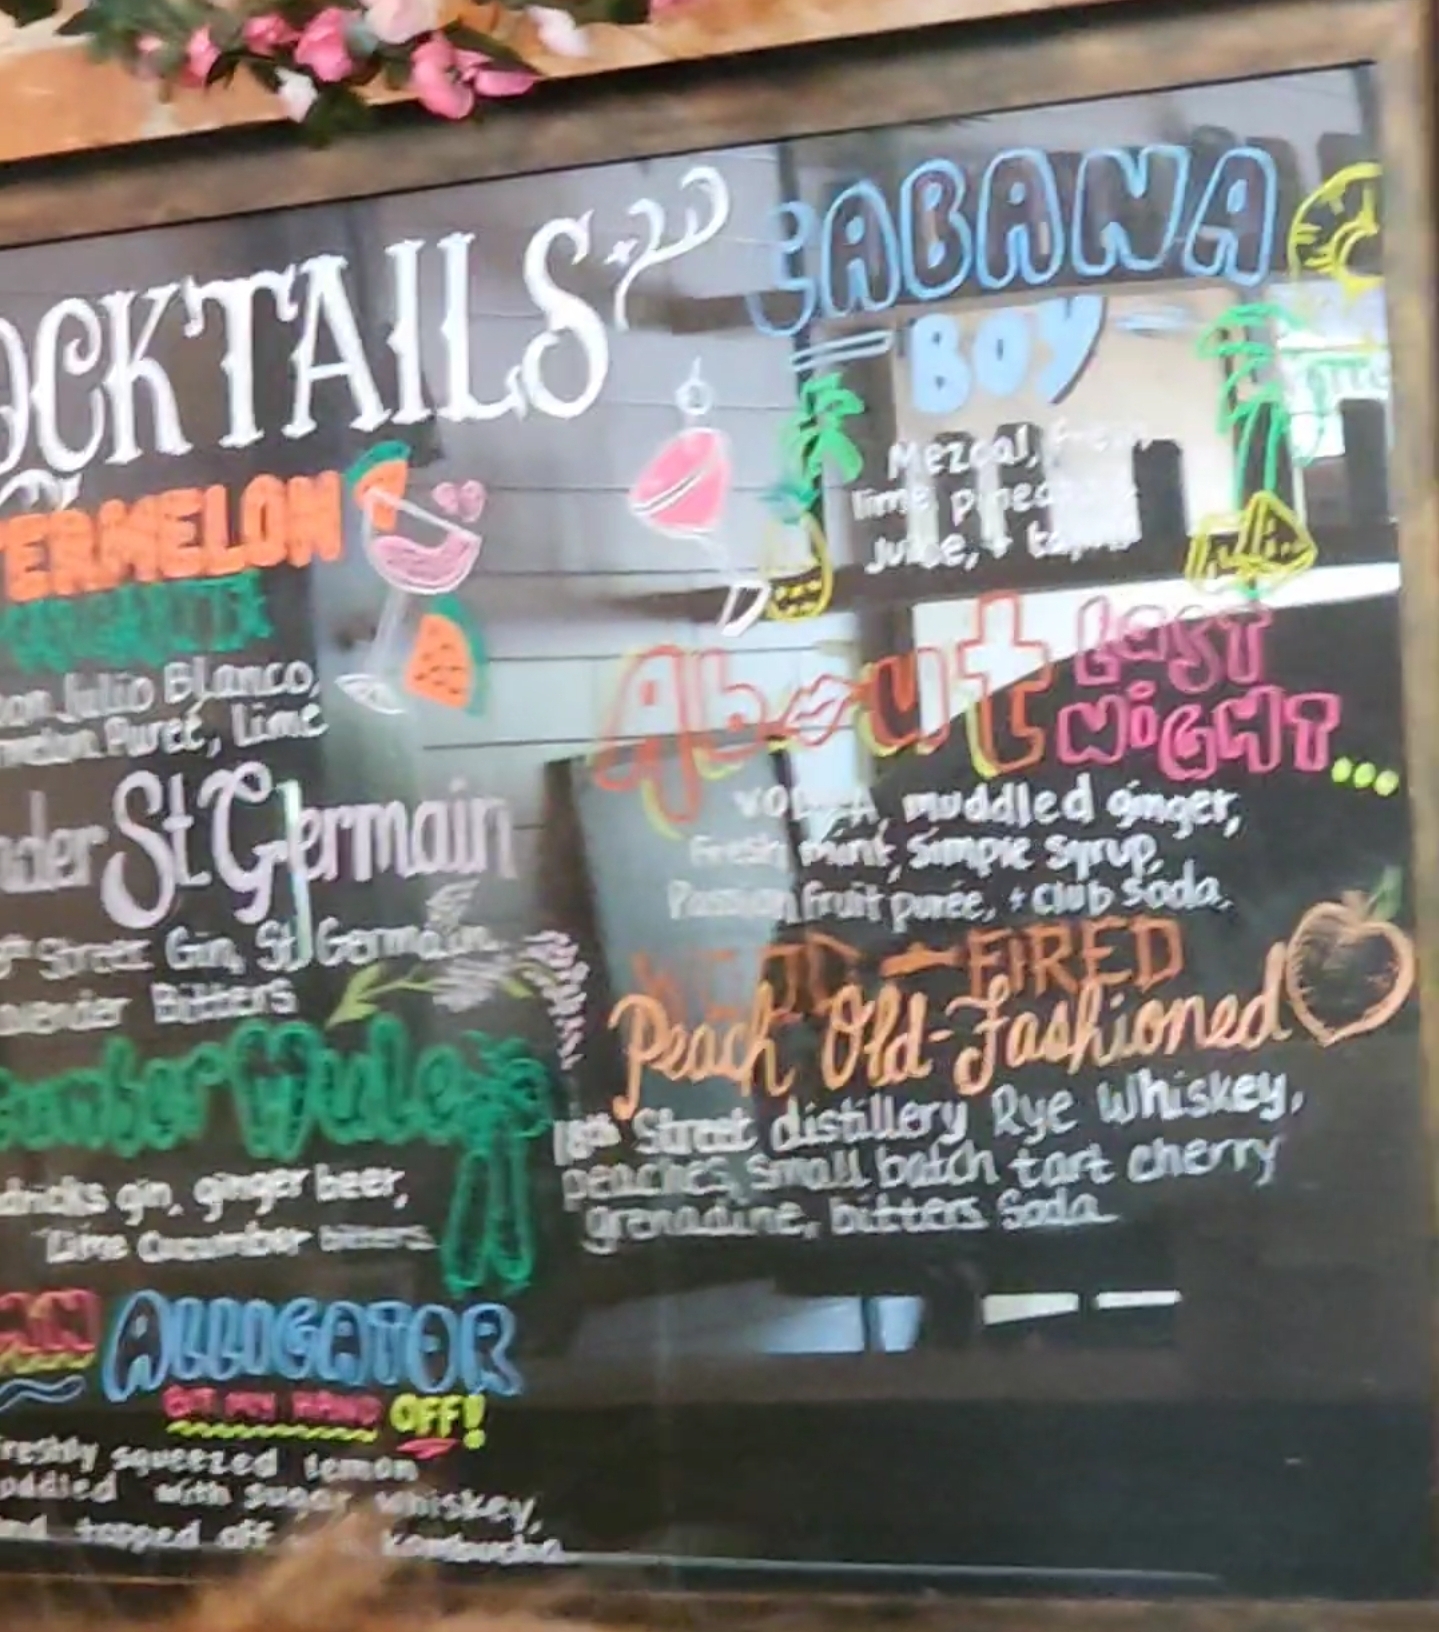 COCKTAILS
ERMELON
Julio Blanco,
Pureé, Lime
St. Germain
Street Gin, St Germain
Bitters
Mule
gin, ginger beer,
Lime Cucumber bitters
ALLIGATOR
OFF!
freshly squeezed lemon
with sugar, whiskey,
and topped off kombucha
CABANA
BOY
Mezcal, fresh
lime, pineapple
Juice, +
About LAST
NIGHT...
VODKA, muddled ginger,
Fresh mint, Simple Syrup,
Passion fruit purée, + Club Soda.
WOOD-FIRED
Peach Old-Fashioned
18th Street distillery Rye Whiskey,
peaches, small batch tart cherry
grenadine, bitters Soda